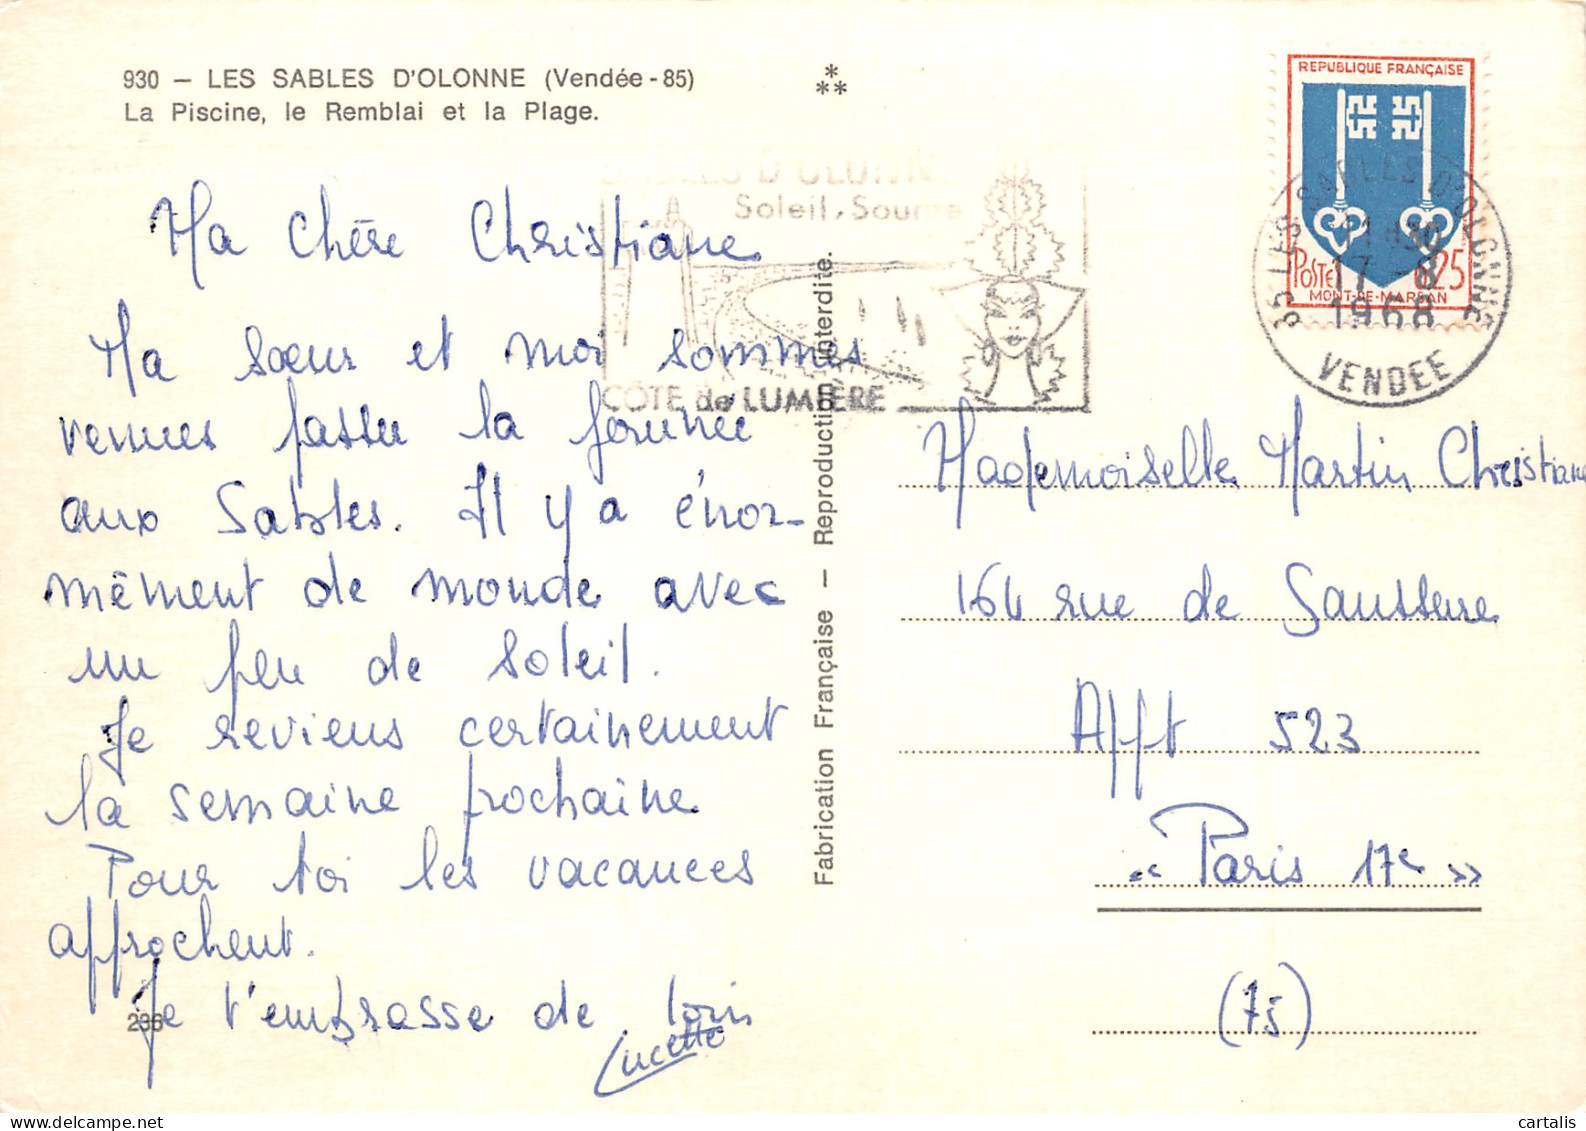 930 — LES SABLES D'OLONNE (Vendée - 85)
La Piscine, le Remblai et la Plage.
Ma chère Christiane
Ma sœur et moi sommes
venues passer la journée
aux Sables. Il y a énor-
mément de monde avec
un peu de soleil.
Je reviens certainement
la semaine prochaine
Pour toi les vacances
approchent.
Je t'embrasse de loin
Lucette
236
Fabrication Française — Reproduction interdite.
SABLES D'OLONNE
Soleil, Sourire
CÔTE de LUMIÈRE
REPUBLIQUE FRANÇAISE
POSTES 0,25
MONT-DE-MARSAN
85 LES SABLES D'OLONNE
17 - 8
1968
VENDEE
Mademoiselle Martin Christiane
164 rue de Saussure
Appt 523
"Paris 17e"
(75)
cartalis